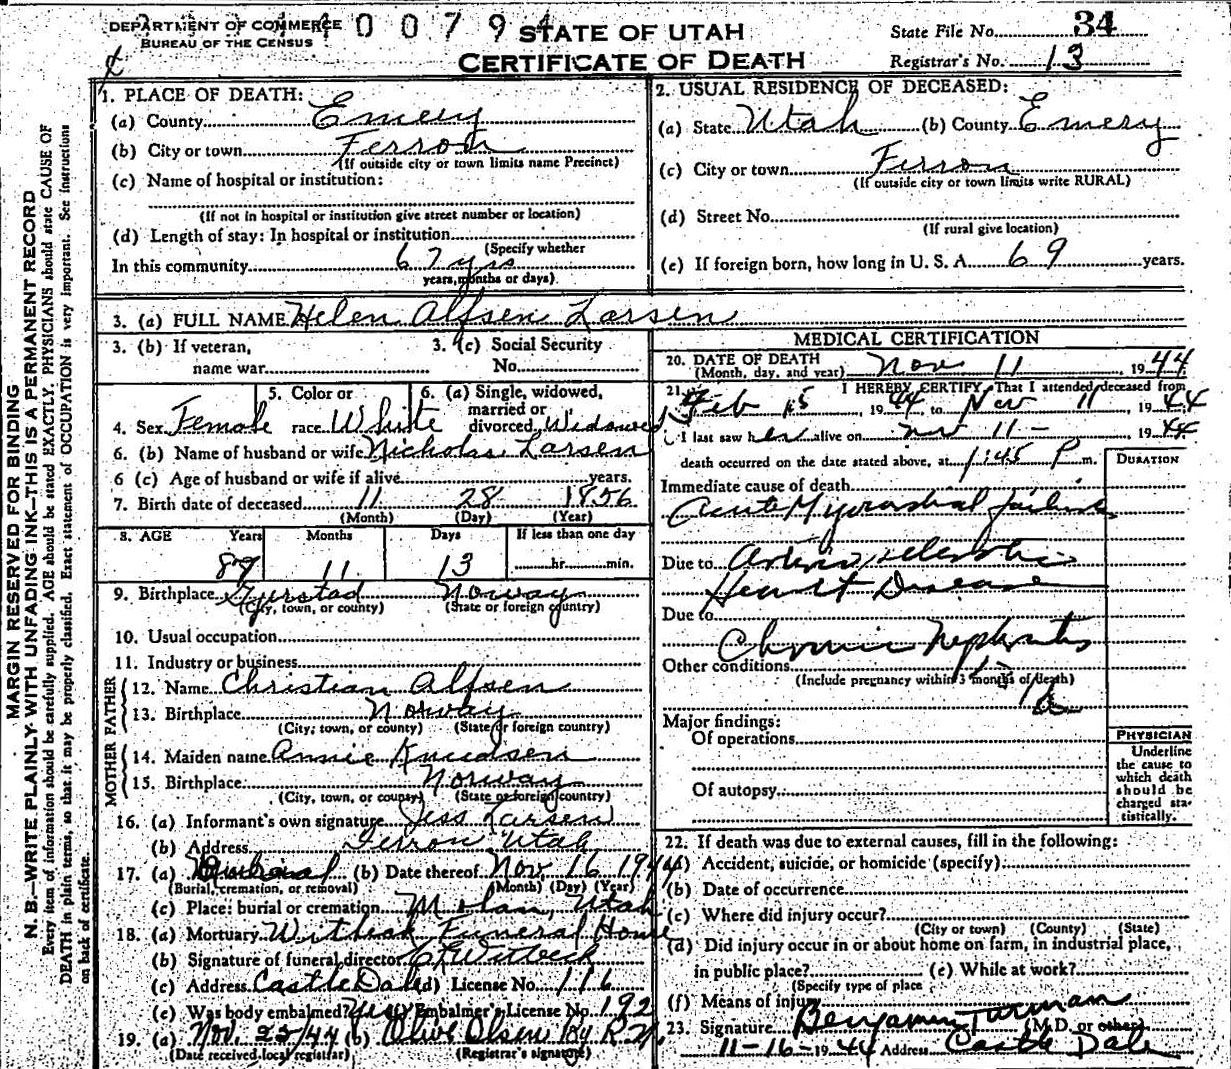 DEPARTMENT OF COMMERCE
BUREAU OF THE CENSUS
0 0 7 9 4
STATE OF UTAH
CERTIFICATE OF DEATH
State File No. 34
Registrar's No. 13
MARGIN RESERVED FOR BINDING
N. B.—WRITE PLAINLY WITH UNFADING INK—THIS IS A PERMANENT RECORD
Every item of information should be carefully supplied. AGE should be stated EXACTLY. PHYSICIANS should state CAUSE OF
DEATH in plain terms, so that it may be properly classified. Exact statement of OCCUPATION is very important. See instructions
on back of certificate.
1. PLACE OF DEATH:
(a) County Emery
(b) City or town Ferron
(If outside city or town limits name Precinct)
(c) Name of hospital or institution:
(If not in hospital or institution give street number or location)
(d) Length of stay: In hospital or institution
(Specify whether
In this community 67 yrs
years, months or days)
2. USUAL RESIDENCE OF DECEASED:
(a) State Utah (b) County Emery
(c) City or town Ferron
(If outside city or town limits write RURAL)
(d) Street No.
(If rural give location)
(e) If foreign born, how long in U. S. A. 69 years.
3. (a) FULL NAME Helen Alfsen Larsen
3. (b) If veteran,
name war
3. (c) Social Security
No.
4. Sex Female
5. Color or
race White
6. (a) Single, widowed,
married or
divorced Widowed
6. (b) Name of husband or wife Nicholas Larsen
6 (c) Age of husband or wife if alive years.
7. Birth date of deceased 11 28 1856
(Month) (Day) (Year)
8. AGE Years Months Days If less than one day
11 13 hr. min.
9. Birthplace Norway
(City, town, or county) (State or foreign country)
10. Usual occupation
11. Industry or business
FATHER
12. Name Christian Alfsen
13. Birthplace Norway
(City, town, or county) (State or foreign country)
MOTHER
14. Maiden name Annie Knudsen
15. Birthplace Norway
(City, town, or county) (State or foreign country)
16. (a) Informant's own signature Jess Larsen
(b) Address Ferron, Utah
17. (a) Burial (b) Date thereof Nov. 16 1944
(Burial, cremation, or removal) (Month) (Day) (Year)
(c) Place: burial or cremation Molan, Utah
18. (a) Mortuary Witbeck Funeral Home
(b) Signature of funeral director Witbeck
(c) Address Castle Dale (d) License No. 116
(e) Was body embalmed? Yes (f) Embalmer's License No. 192
19. (a) Nov. 22/44 (b) Olive Olsen By R.N.
(Date received local registrar) (Registrar's signature)
MEDICAL CERTIFICATION
20. DATE OF DEATH
(Month, day, and year) Nov 11, 1944
21. I HEREBY CERTIFY, That I attended deceased from
Feb 15, 1944 to Nov 11, 1944
I last saw her alive on Nov 11 - 1944
death occurred on the date stated above, at 1:45 P m.
DURATION
Immediate cause of death
Acute Myocardial failure
Due to Arteriosclerotic
Heart Disease
Due to
Chronic Nephritis
Other conditions
(Include pregnancy within 3 months of death)
Major findings:
Of operations
Of autopsy
PHYSICIAN
Underline
the cause to
which death
should be
charged sta-
tistically.
22. If death was due to external causes, fill in the following:
(a) Accident, suicide, or homicide (specify)
(b) Date of occurrence
(c) Where did injury occur?
(City or town) (County) (State)
(d) Did injury occur in or about home on farm, in industrial place,
in public place? (e) While at work?
(Specify type of place
(f) Means of injury
23. Signature Benjamin Turman (M.D. or other)
11-16-1944 Address Castle Dale